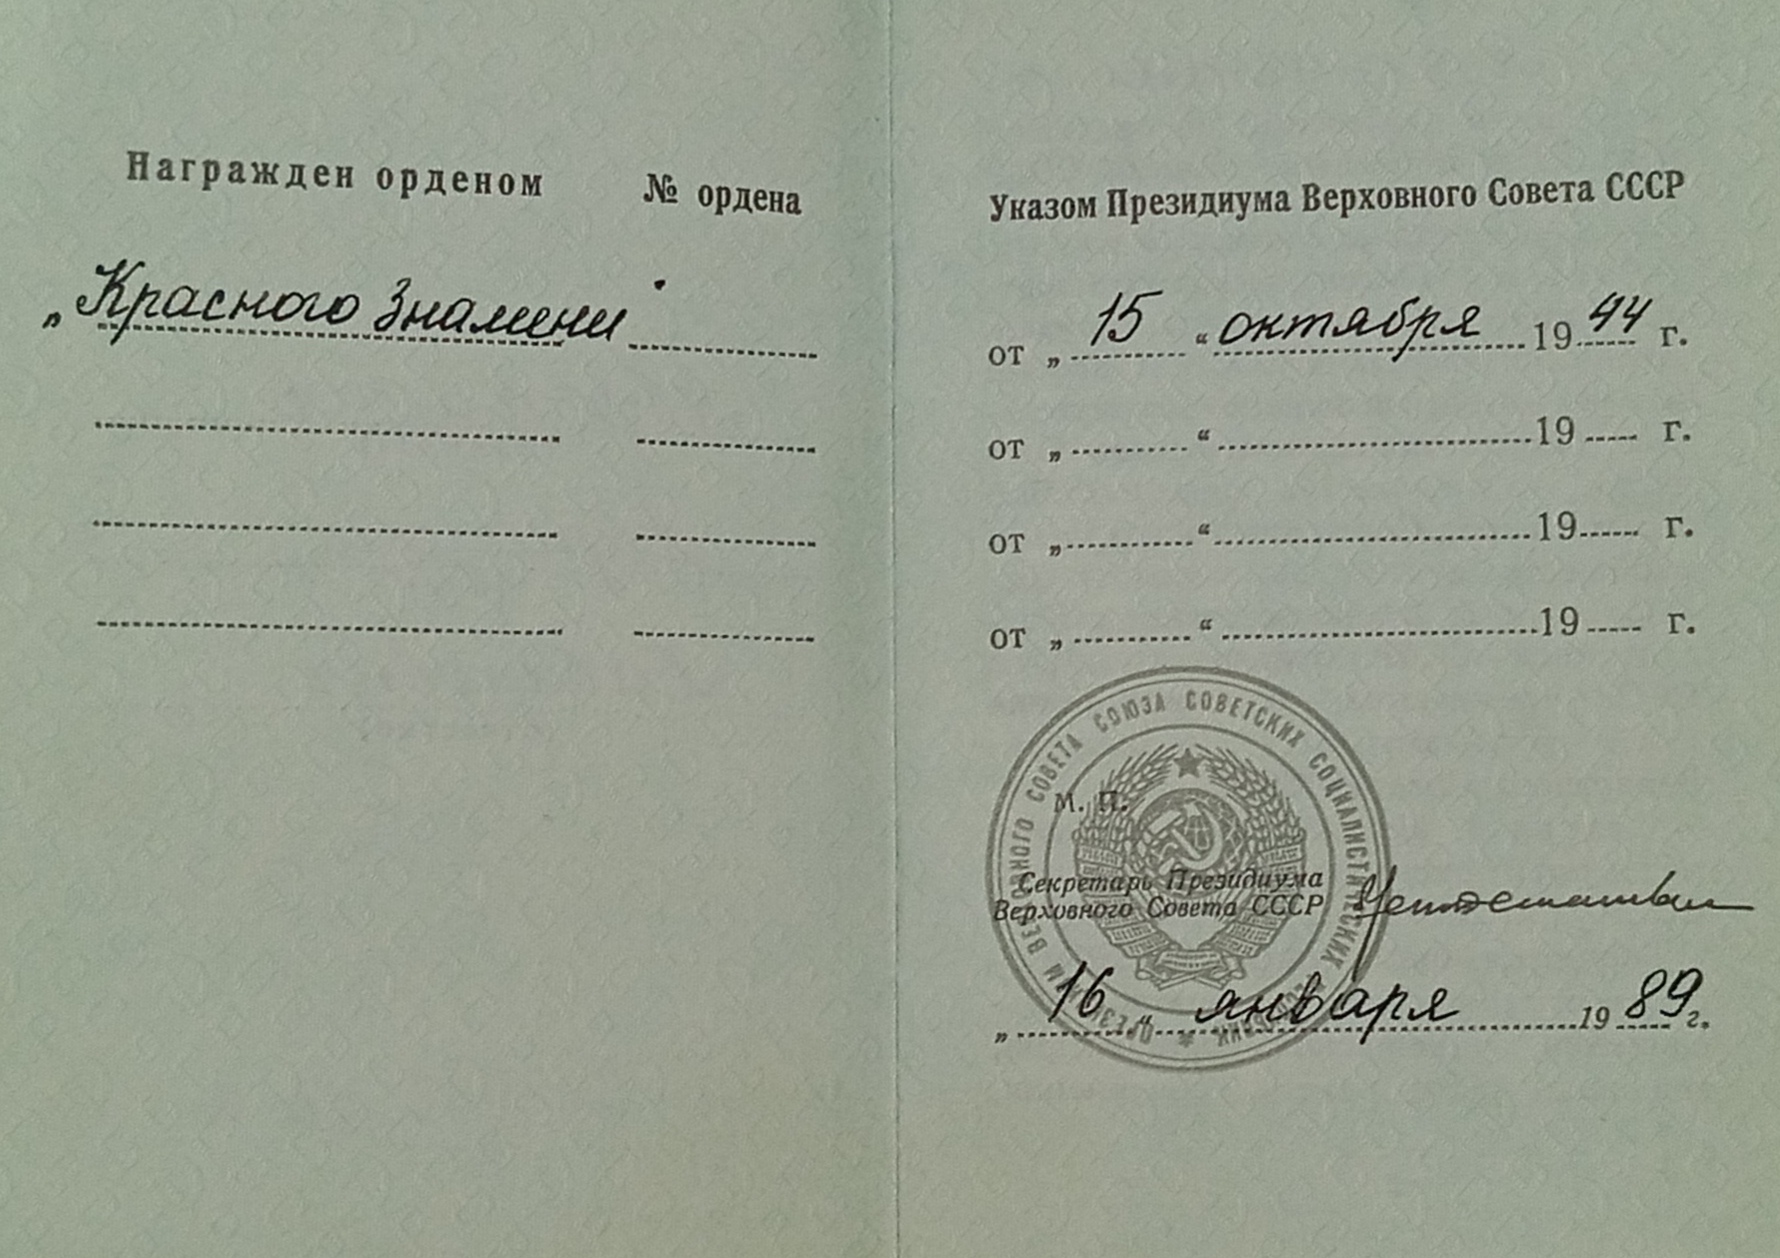 Награжден орденом № ордена
„Красного Знамени"
Указом Президиума Верховного Совета СССР
от „ 15 “ октября 19 44 г.
от „ “ 19 г.
от „ “ 19 г.
от „ “ 19 г.
ПРЕЗИДИУМ ВЕРХОВНОГО СОВЕТА СОЮЗА СОВЕТСКИХ СОЦИАЛИСТИЧЕСКИХ РЕСПУБЛИК
М. П.
Секретарь Президиума
Верховного Совета СССР
„ 16 “ января 19 89 г.